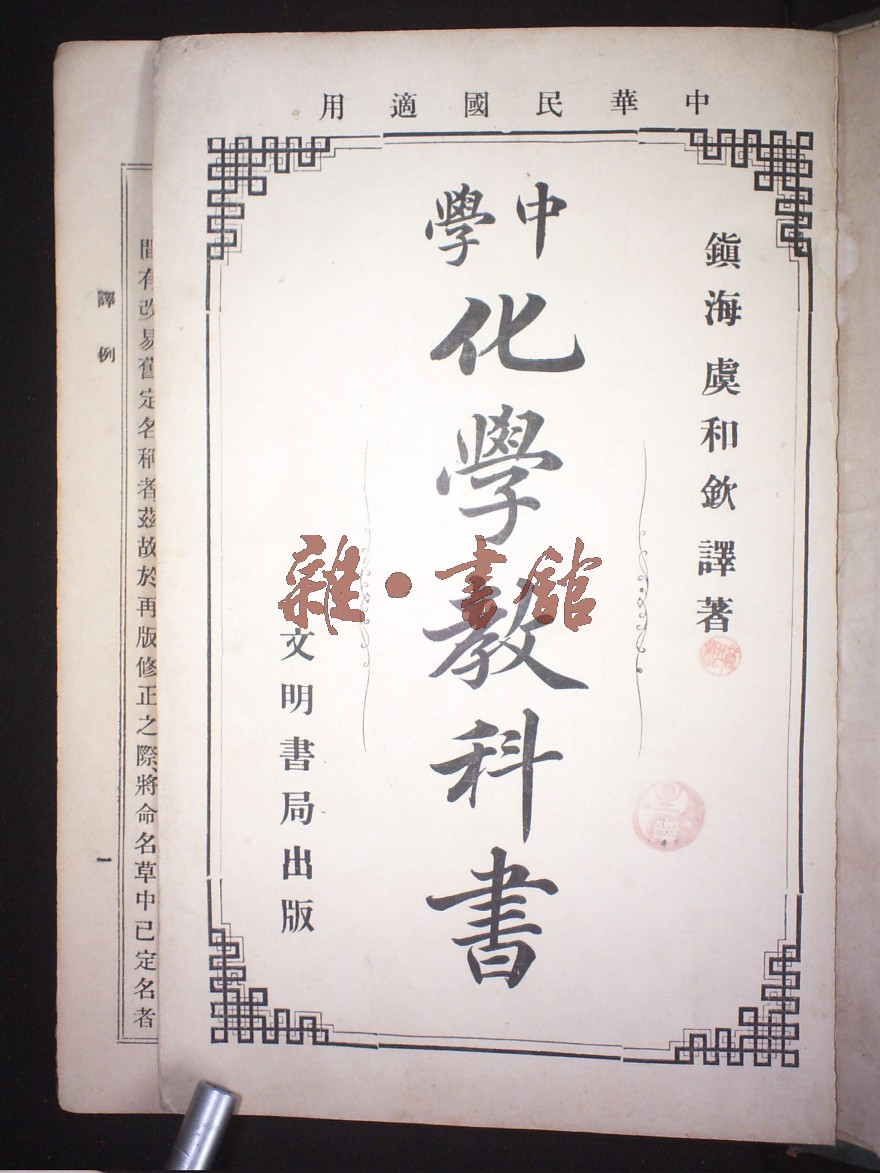 中華民國適用
鎮海虞和欽譯著
中學
化學教科書
文明書局出版
雜·書館
間有改易舊定名稱者茲故於再版修正之際將命名草中已定名者
譯例
一